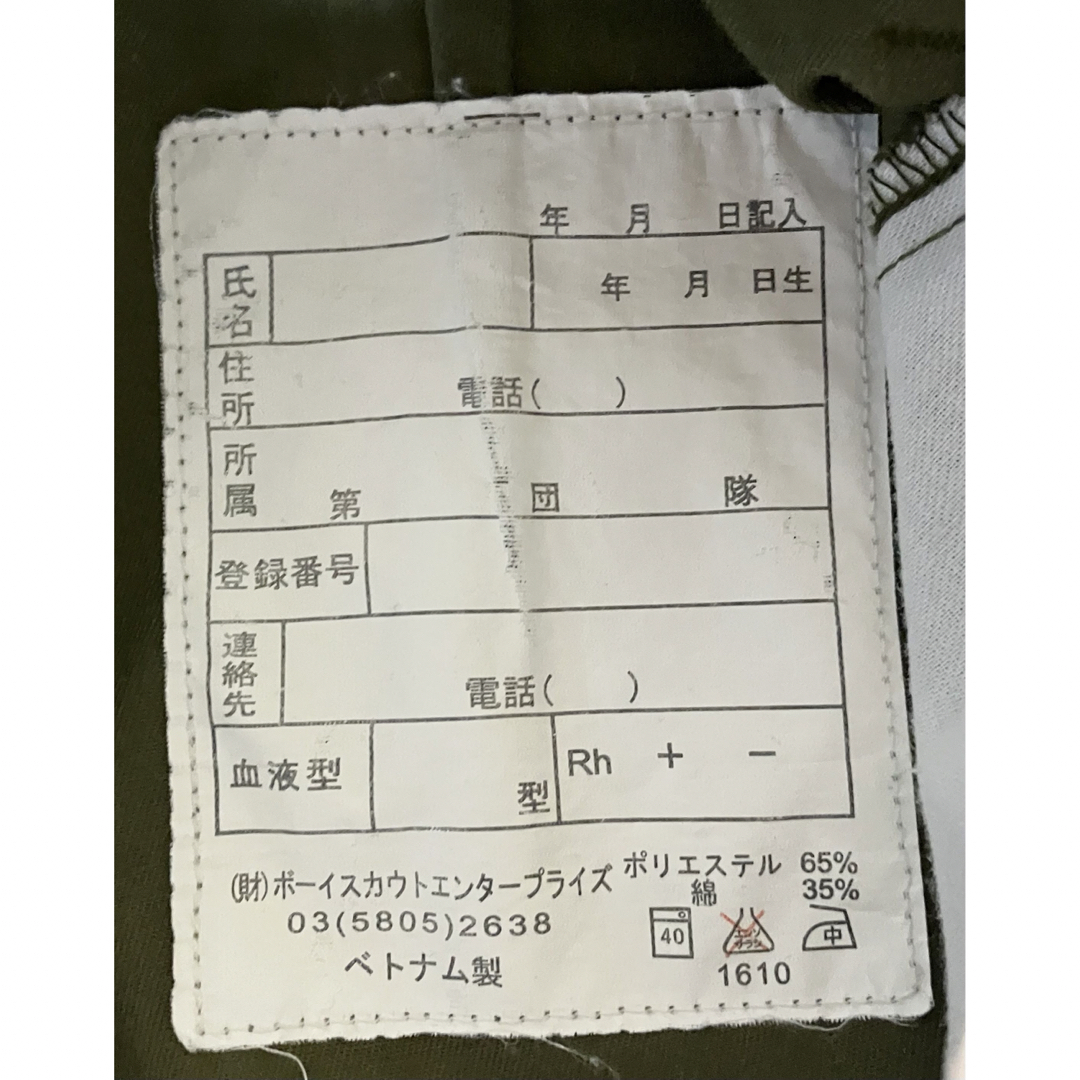 年 月 日記入
氏名
年 月 日生
住所
電話( )
所属 第 団 隊
登録番号
連絡先
電話( )
血液型
型
Rh + −
(財)ボーイスカウトエンタープライズ
03(5805)2638
ベトナム製
ポリエステル 65%
綿 35%
40
エンソ サラシ
中
1610